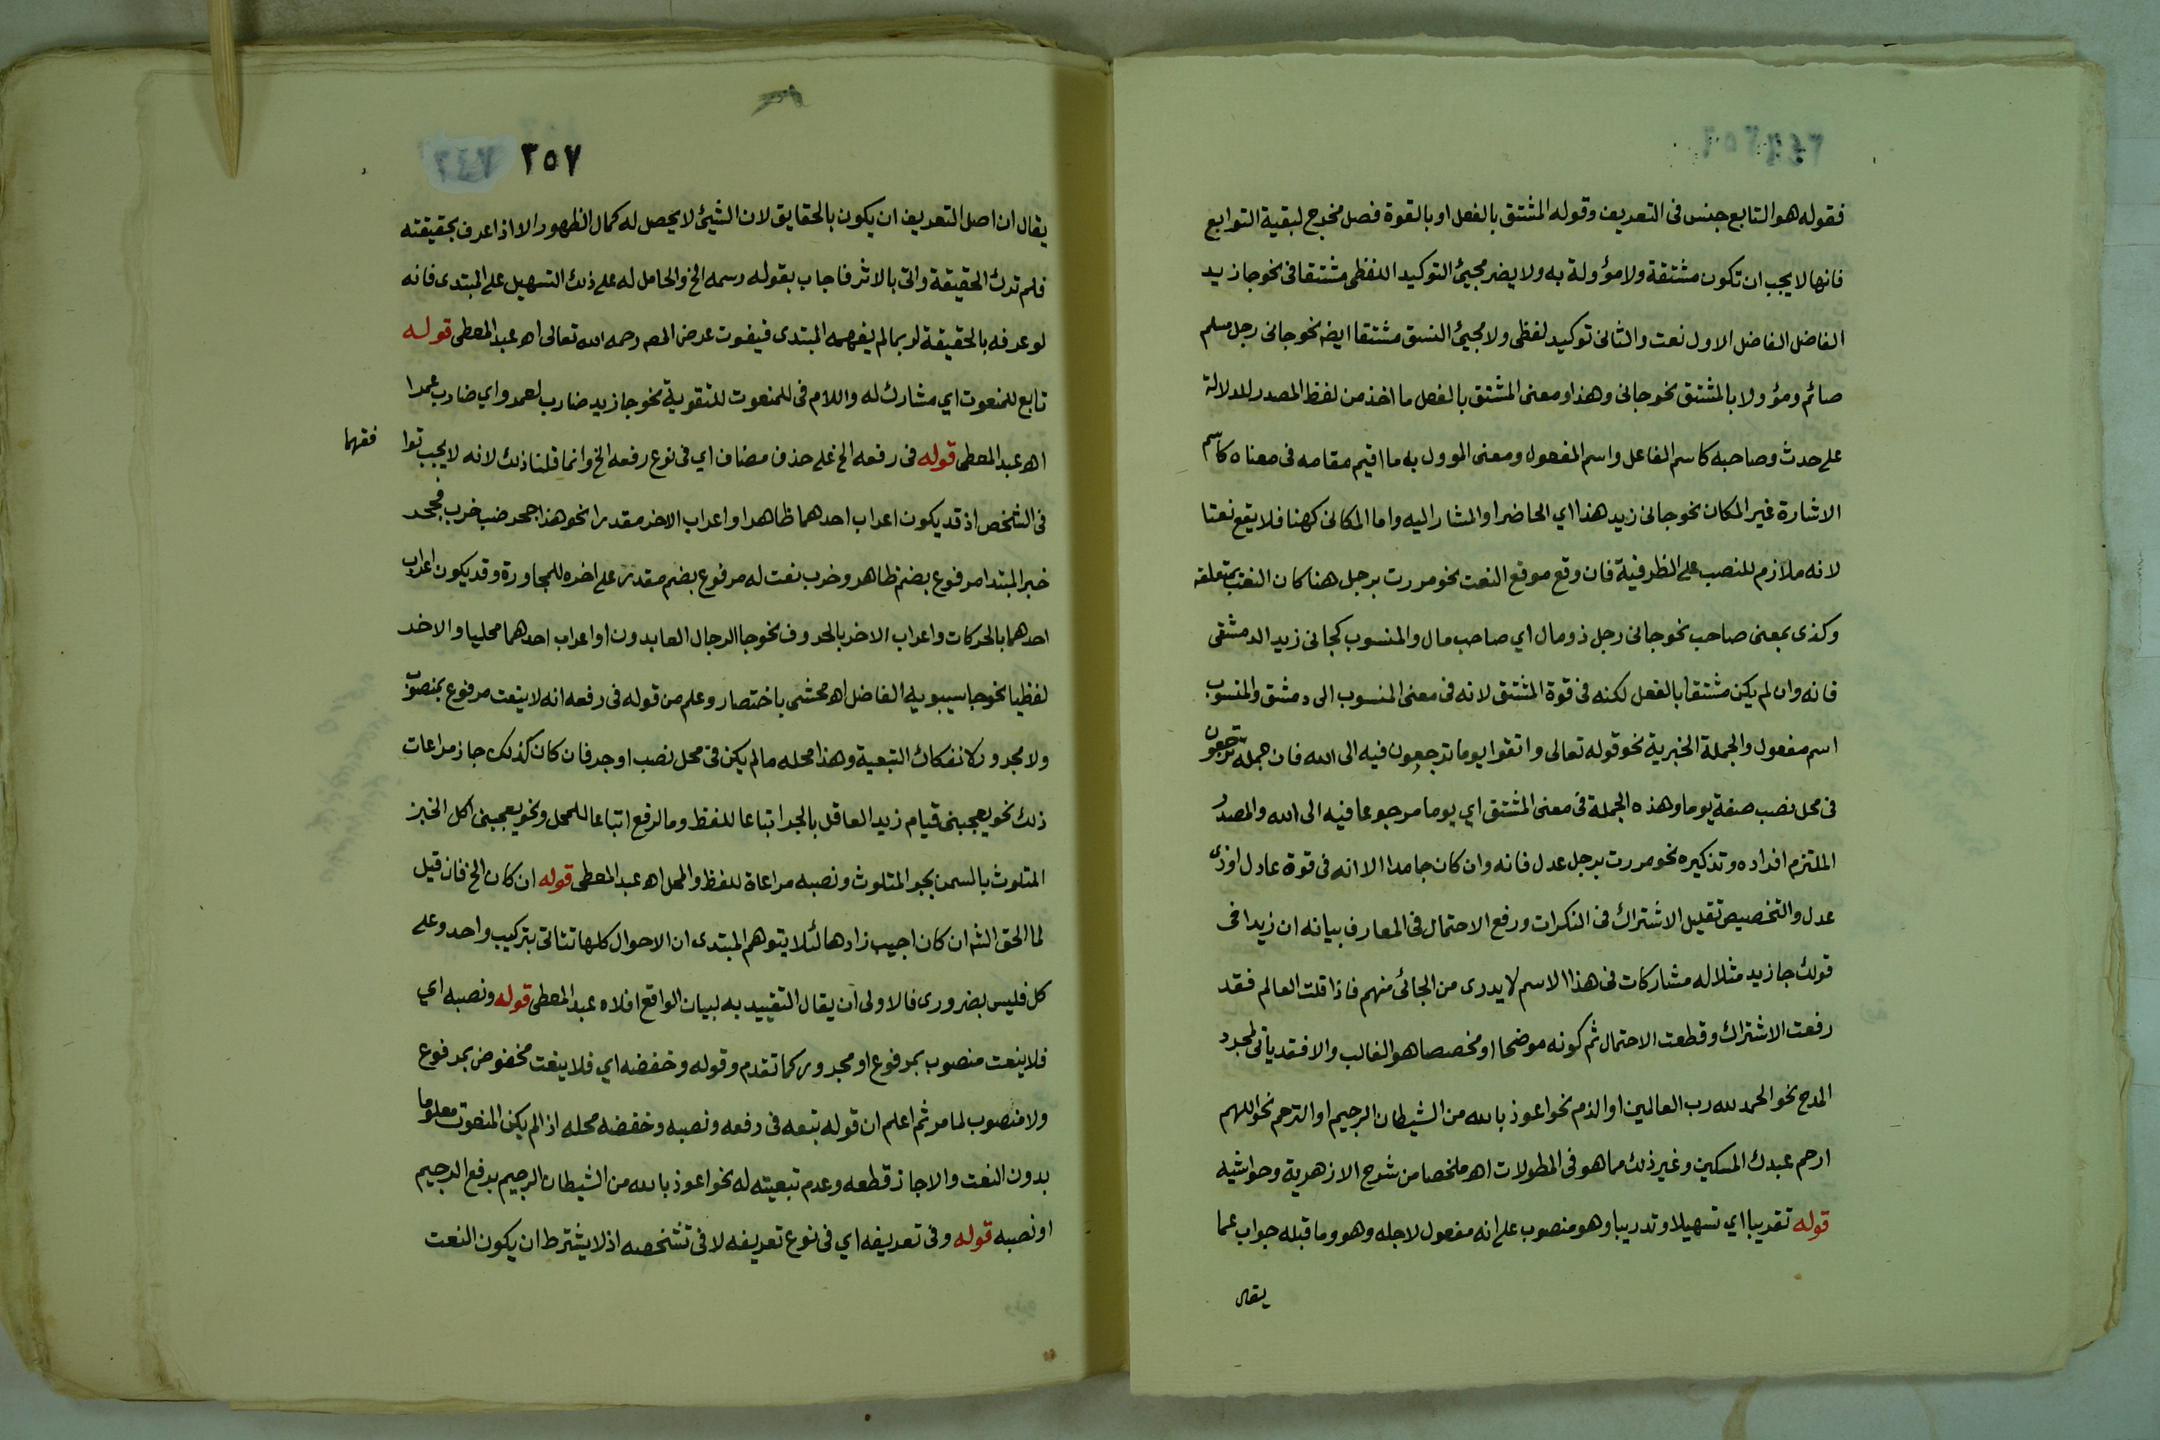 فقوله هو التابع جنس فى التعريف وقوله المشتق بالفعل او بالقوة فصل مخرج لبقية التوابع
فانها لا يجب ان تكون مشتقة ولا مؤولة به ولا يضر مجيئ التوكيد اللفظى مشتقا فى نحو جا زيد
الفاضل الفاضل الاول نعت والثانى توكيد لفظى ولا مجيئ النسق مشتقا ايضا نحو جانى رجل مسلم
صائم ومؤولا بالمشتق نحو جانى وهذا ومعنى المشتق بالفعل ما اخذ من لفظ المصدر للدلالة
على حدث وصاحبه كاسم الفاعل واسم المفعول ومعنى الموول به ما اقيم مقامه فى معناه كاسم
الاشارة غير المكان نحو جانى زيد هذا اي الحاضر او المشار اليه واما المكانى كهنا فلا يقع نعتا
لانه ملازم للنصب على الظرفية فان وقع موقع النعت نحو مررت برجل هنا كان النعت بمتعلقه
وكذى بمعنى صاحب نحو جانى رجل ذو مال اي صاحب مال والمنسوب كجانى زيد الدمشقى
فانه وان لم يكن مشتقا بالفعل لكنه فى قوة المشتق لانه فى معنى المنسوب الى دمشق والمنسوب
اسم مفعول والجملة الخبرية نحو قوله تعالى واتقوا يوما ترجعون فيه الى الله فان جملة ترجعون
فى محل نصب صفة يوما وهذه الجملة فى معنى المشتق اي يوما مرجوعا فيه الى الله والمصدر
الملتزم افراده وتذكيره نحو مررت برجل عدل فانه وان كان جامدا الا انه فى قوة عادل او ذى
عدل والتخصيص تقليل الاشتراك فى النكرات ورفع الاحتمال فى المعارف بيانه ان زيدا فى
قولك جا زيد مثلا له مشاركات فى هذا الاسم لا يدرى من الجائى منهم فاذا قلت العالم فقد
رفعت الاشتراك وقطعت الاحتمال ثم كونه موضحا او مخصصا هو الغالب والا فقد ياتى لمجرد
المدح نحو الحمد لله رب العالمين او الذم نحو اعوذ بالله من الشيطان الرجيم او الترحم نحو اللهم
ارحم عبدك المسكين وغير ذلك مما هو فى المطولات اهـ ملخصا من شرح الازهرية وحواشيه
قوله تقريبا اي تسهيلا وتدريبا وهو منصوب على انه مفعول لاجله وهو وما قبله جواب عما
يقال
٣٥٧
يقال ان اصل التعريف ان يكون بالحقايق لان الشيئ لا يحصل له كمال الظهور الا اذا عرف بحقيقته
فلم ترك الحقيقة واتى بالاثر فاجاب بقوله رسمه الخ والحامل له على ذلك التسهيل على المبتدى فانه
لو عرفه بالحقيقة لربما لم يفهمه المبتدى فيفوت غرض المصـ رحمه الله تعالى اهـ عبد المعطى قوله
تابع للمنعوت اي مشارك له واللام فى للمنعوت للتقوية نحو جا زيد ضارب لعمرو اي ضارب عمرا
اهـ عبد المعطى قوله فى رفعه الخ على حذف مضاف اي فى نوع رفعه الخ وانما قلنا ذلك لانه لا يجب توا
فقهما
فى الشخص اذ قد يكون اعراب احدهما ظاهرا واعراب الاخر مقدرا نحو هذا جحر ضب خرب فجحر
خبر المبتدا مرفوع بضم ظاهر وخرب نعت له مرفوع بضم مقدر على اخره للمجاورة وقد يكون اعراب
احدهما بالحركات واعراب الاخر بالحروف نحو جا الرجال العابدون او اعراب احدهما محليا والاخر
لفظيا نحو جا سيبويه الفاضل اهـ محشى باختصار وعلم من قوله فى رفعه انه لا ينعت مرفوع بمنصوب
ولا مجرور لانفكاك التبعية وهذا محله ما لم يكن فى محل نصب او جر فان كان كذلك جاز مراعات
ذلك نحو يعجبنى قيام زيد العاقل بالجر اتباعا للفظ وما لرفع اتباعا للمحل ونحو يعجبنى اكل الخبز
المتلوث بالسمن بجر المتلوث ونصبه مراعاة للفظ والمحل اهـ عبد المعطى قوله ان كان الخ فان قيل
لما الحق الشـ ان كان اجيب زادها لئلا يتوهم المبتدى ان الاحوال كلها تتاتى بتركيب واحد وعلى
كل فليس بضرورى فالاولى ان يقال التقييد به لبيان الواقع افلاه عبد المعطى قوله ونصبه اي
فلا ينعت منصوب بمرفوع او مجرور كما تقدم وقوله وخفضه اي فلا ينعت مخفوض بمرفوع
ولا منصوب لما مر ثم اعلم ان قوله تبعه فى رفعه ونصبه وخفضه محله اذا لم يكن المنعوت معلوما
بدون النعت والا جاز قطعه وعدم تبعيته له نحو اعوذ بالله من الشيطان الرجيم برفع الرجيم
او نصبه قوله وفى تعريفه اي فى نوع تعريفه لا فى تشخصه اذ لا يشترط ان يكون النعت